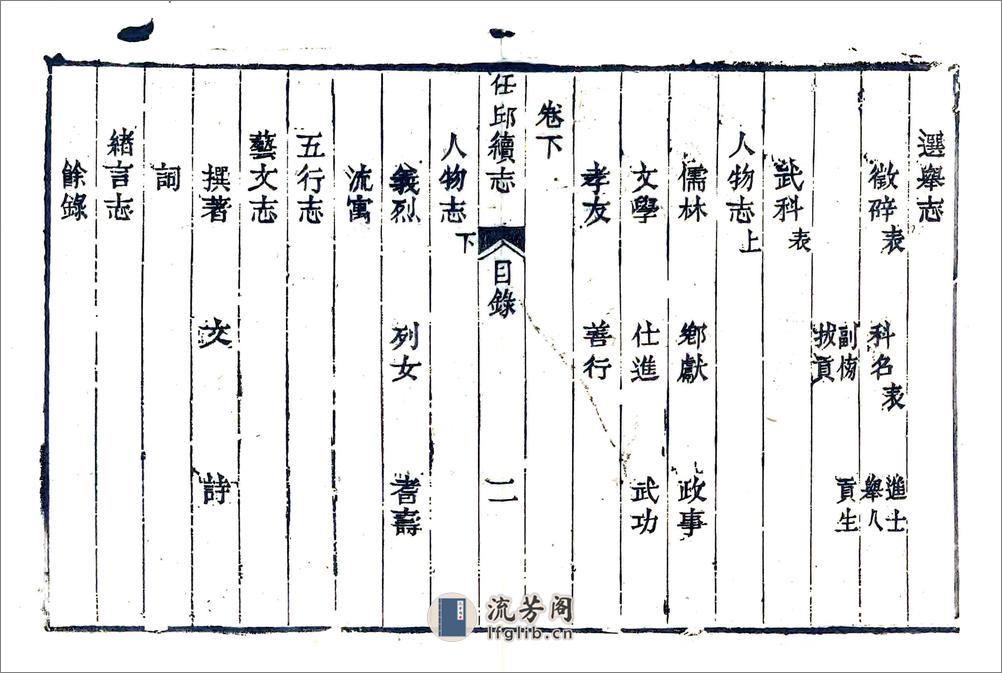 選舉志
徵辟表 科名表 進士 舉人
副榜 拔貢 貢生
武科表
人物志上
儒林 鄉獻 政事
文學 仕進 武功
孝友 善行
卷下
任邱續志 目錄 二
人物志下
義烈 列女 耆壽
流寓
五行志
藝文志
撰著 文 詩
詞
緒言志
餘錄
流芳阁
lfglib.cn